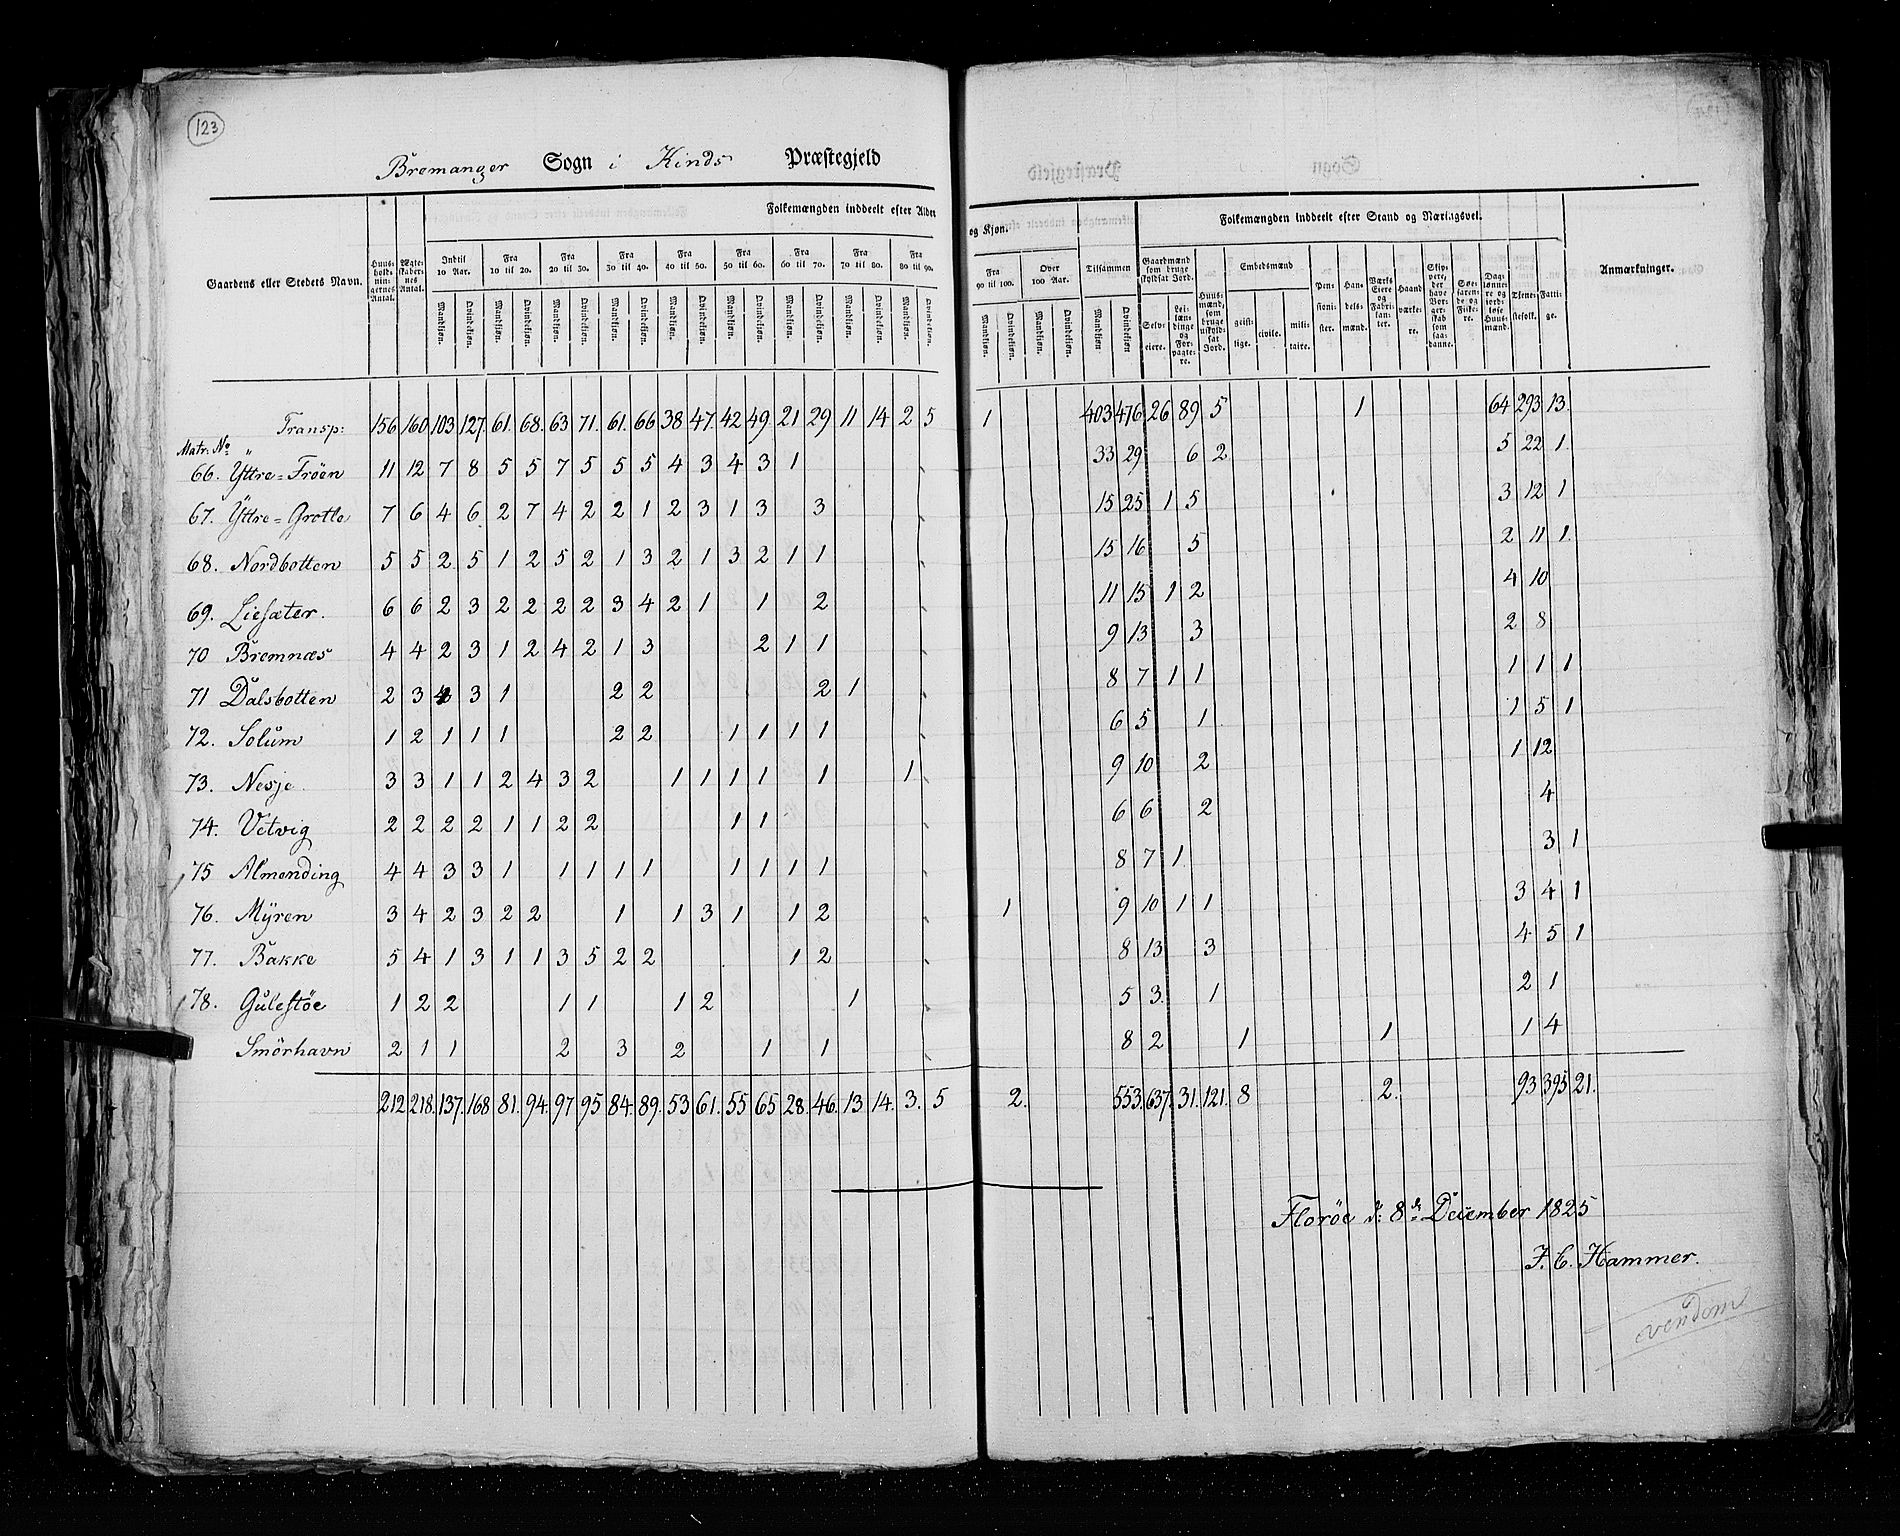 123
Bremanger Sogn i Kinds Præstegjeld
Gaardens eller Stedets Navn.
Huus-holdnin-gernes Antal.
Ægte-skaber-nes Antal.
Folkemængden inddeelt efter Alder og Kjøn.
Indtil 10 Aar. Fra 10 til 20. Fra 20 til 30. Fra 30 til 40. Fra 40 til 50. Fra 50 til 60. Fra 60 til 70. Fra 70 til 80. Fra 80 til 90. Fra 90 til 100. Over 100 Aar. Tilsammen
Mandkjøn. Qvindekjøn. Mandkjøn. Qvindekjøn. Mandkjøn. Qvindekjøn. Mandkjøn. Qvindekjøn. Mandkjøn. Qvindekjøn. Mandkjøn. Qvindekjøn. Mandkjøn. Qvindekjøn. Mandkjøn. Qvindekjøn. Mandkjøn. Qvindekjøn. Mandkjøn. Qvindekjøn. Mandkjøn. Qvindekjøn. Mandkjøn. Qvindekjøn
Folkemængden inddeelt efter Stand og Næringsvei.
Gaardmænd som bruge skyldsat Jord.
Selv-eiere.
Lei-læn-dinge og For-pagte-re.
Huus-mænd, som bruge uskyld-sat Jord.
Embedsmænd
geist-lige. civile. mili-taire.
Pen-sioni-ster.
Han-dels-mænd.
Værks Eiere og Fabri-kan-ter.
Haand værke-re.
Skip-pere, der have Bor-ger-skab som saa-danne.
Søe-faren-de og Fiske-re.
Dag-lønne-re og jord-løse Huus-mænd.
Tjene-stefolk.
Fatti-ge.
Anmærkninger.
Transp: 156 160 103 127. 61. 68. 63 71. 61. 66 38 47. 42 49. 21 29 11 14 2 5 1 403 476 26 89 5 1 64 293 13.
Matr. No
66. Yttre=Fröen 11 12 7 8 5 5 7 5 5 5 4 3 4 3 1 33 29 6 2 5 22 1
67. Yttre=Grotle 7 6 4 6 2 7 4 2 2 1 2 3 1 3 3 15 25 1 5 3 12 1
68. Nordbotten 5 5 2 5 1 2 5 2 1 3 2 1 3 2 1 1 15 16 5 2 11 1
69. Liesæter. 6 6 2 3 2 2 2 2 3 4 2 1 1 2 11 15 1 2 4 10
70 Bremnæs 4 4 2 3 1 2 4 2 1 3 2 1 1 9 13 3 2 8
71 Dalsbotten 2 3 4 3 1 2 2 2 1 8 7 1 1 1 1 1
72. Solum 1 2 1 1 1 2 2 1 1 1 1 6 5 1 1 5 1
73. Nesje 3 3 1 1 2 4 3 2 1 1 1 1 1 1 9 10 2 1 12
74. Vetvig 2 2 2 2 1 1 2 2 1 1 6 6 2 4
75 Almending 4 4 3 3 1 1 1 1 1 1 1 1 1 8 7 1 3 1
76. Myren 3 4 2 3 2 2 1 1 3 1 1 2 1 9 10 1 1 3 4 1
77. Bakke 5 4 1 3 1 1 3 5 2 2 1 2 8 13 3 4 5 1
78. Gulestöe 1 2 2 1 1 1 2 1 5 3 1 2 1
Smörhavn 2 1 1 2 3 2 1 1 8 2 1 1 1 4
212 218. 137. 168 81. 94. 97 95 84. 89. 53 61. 55 65 28. 46. 13 14. 3. 5 2. 553. 637. 31. 121. 8 2. 93 395 21.
Floröe d: 8de December 1825
F. C. Hammer.